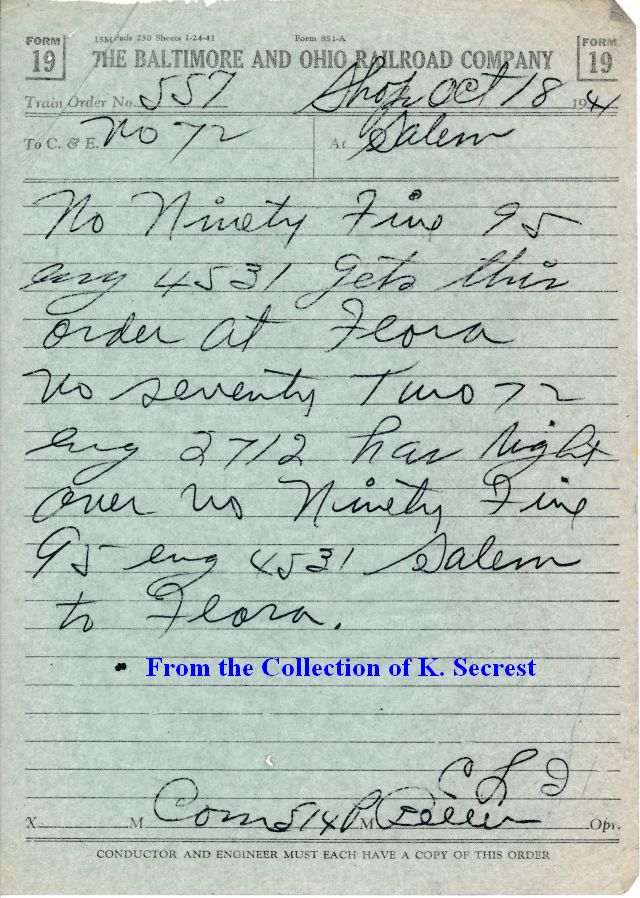 15M Pads 250 Sheets 1-24-41 Form 851-A
FORM 19 THE BALTIMORE AND OHIO RAILROAD COMPANY FORM 19
Train Order No. 557 Shops Oct 18 1941
To C. & E. No 72 At Salem
No Ninety Five 95
eng 4531 gets this
order at Flora
No seventy Two 72
eng 2712 has right
over No Ninety Five
95 eng 4531 Salem
to Flora.
From the Collection of K. Secrest
X M Com 514 P M Opr.
CONDUCTOR AND ENGINEER MUST EACH HAVE A COPY OF THIS ORDER